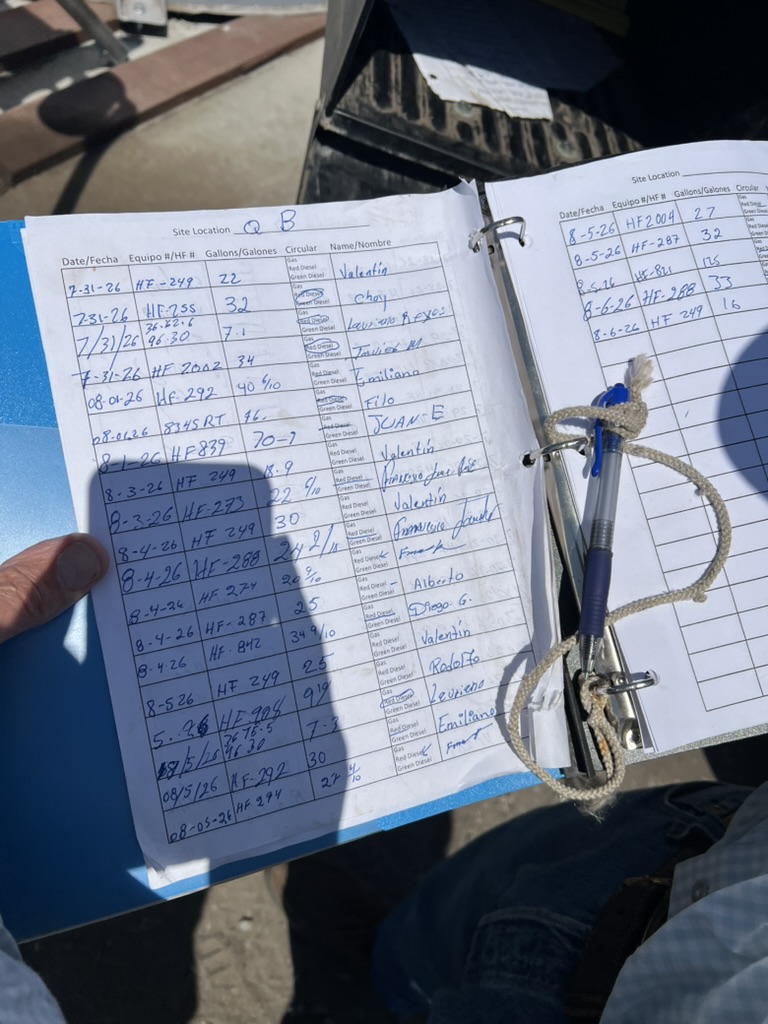 Site Location QB
Date/Fecha Equipo #/HF # Gallons/Galones Circular Name/Nombre
7-31-26 HF-249 22 Gas Red Diesel Green Diesel Valentin
7-31-26 HF-255 32 Gas Red Diesel Green Diesel Choy
7/31/26 96-30 7.1 Gas Red Diesel Green Diesel Laureano Reyes
7-31-26 HF 2002 34 Gas Red Diesel Green Diesel
08-01-26 HF-292 40 6/10 Gas Red Diesel Green Diesel Emiliano
08.01.26 8345RT 16. Gas Red Diesel Green Diesel Filo
8-1-26 HF839 70-7 Gas Red Diesel Green Diesel JUAN-E
8-3-26 HF 249 18.9 Gas Red Diesel Green Diesel Valentín
8-3-26 HF-273 22 6/10 Gas Red Diesel Green Diesel Francisco
8-4-26 HF 249 30 Gas Red Diesel Green Diesel Valentín
8-4-26 HF-288 24 2/10 Gas Red Diesel Green Diesel Francisco
8-4-26 HF 274 20 9/10 Gas Red Diesel Green Diesel
8-4-26 HF-287 25 Gas Red Diesel Green Diesel Alberto
8-4-26 HF-842 34 9/10 Gas Red Diesel Green Diesel Diego G.
8-5 26 HF 249 25 Gas Red Diesel Green Diesel Valentín
HF 908 Gas Red Diesel Green Diesel Rodolfo
/5/26 96 30 7-3 Gas Red Diesel Green Diesel Laureano
08/5/26 HF-292 30 Gas Red Diesel Green Diesel Emiliano
08-05-26 HF 294 Gas Red Diesel Green Diesel
Site Location
Date/Fecha Equipo #/HF # Gallons/Galones Circular
8-5-26 HF2004 27
8-5-26 HF-287 32
8-5-26
8-6-26 HF-288 33
8-6-26 HF 249 16